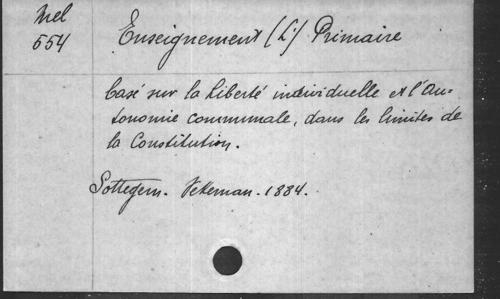 Mel
554
Enseignement (L') Primaire
basé sur la liberté individuelle et l'au-
tonomie communale, dans les limites de
la Constitution.
Sottegem. Vekeman. 1884.